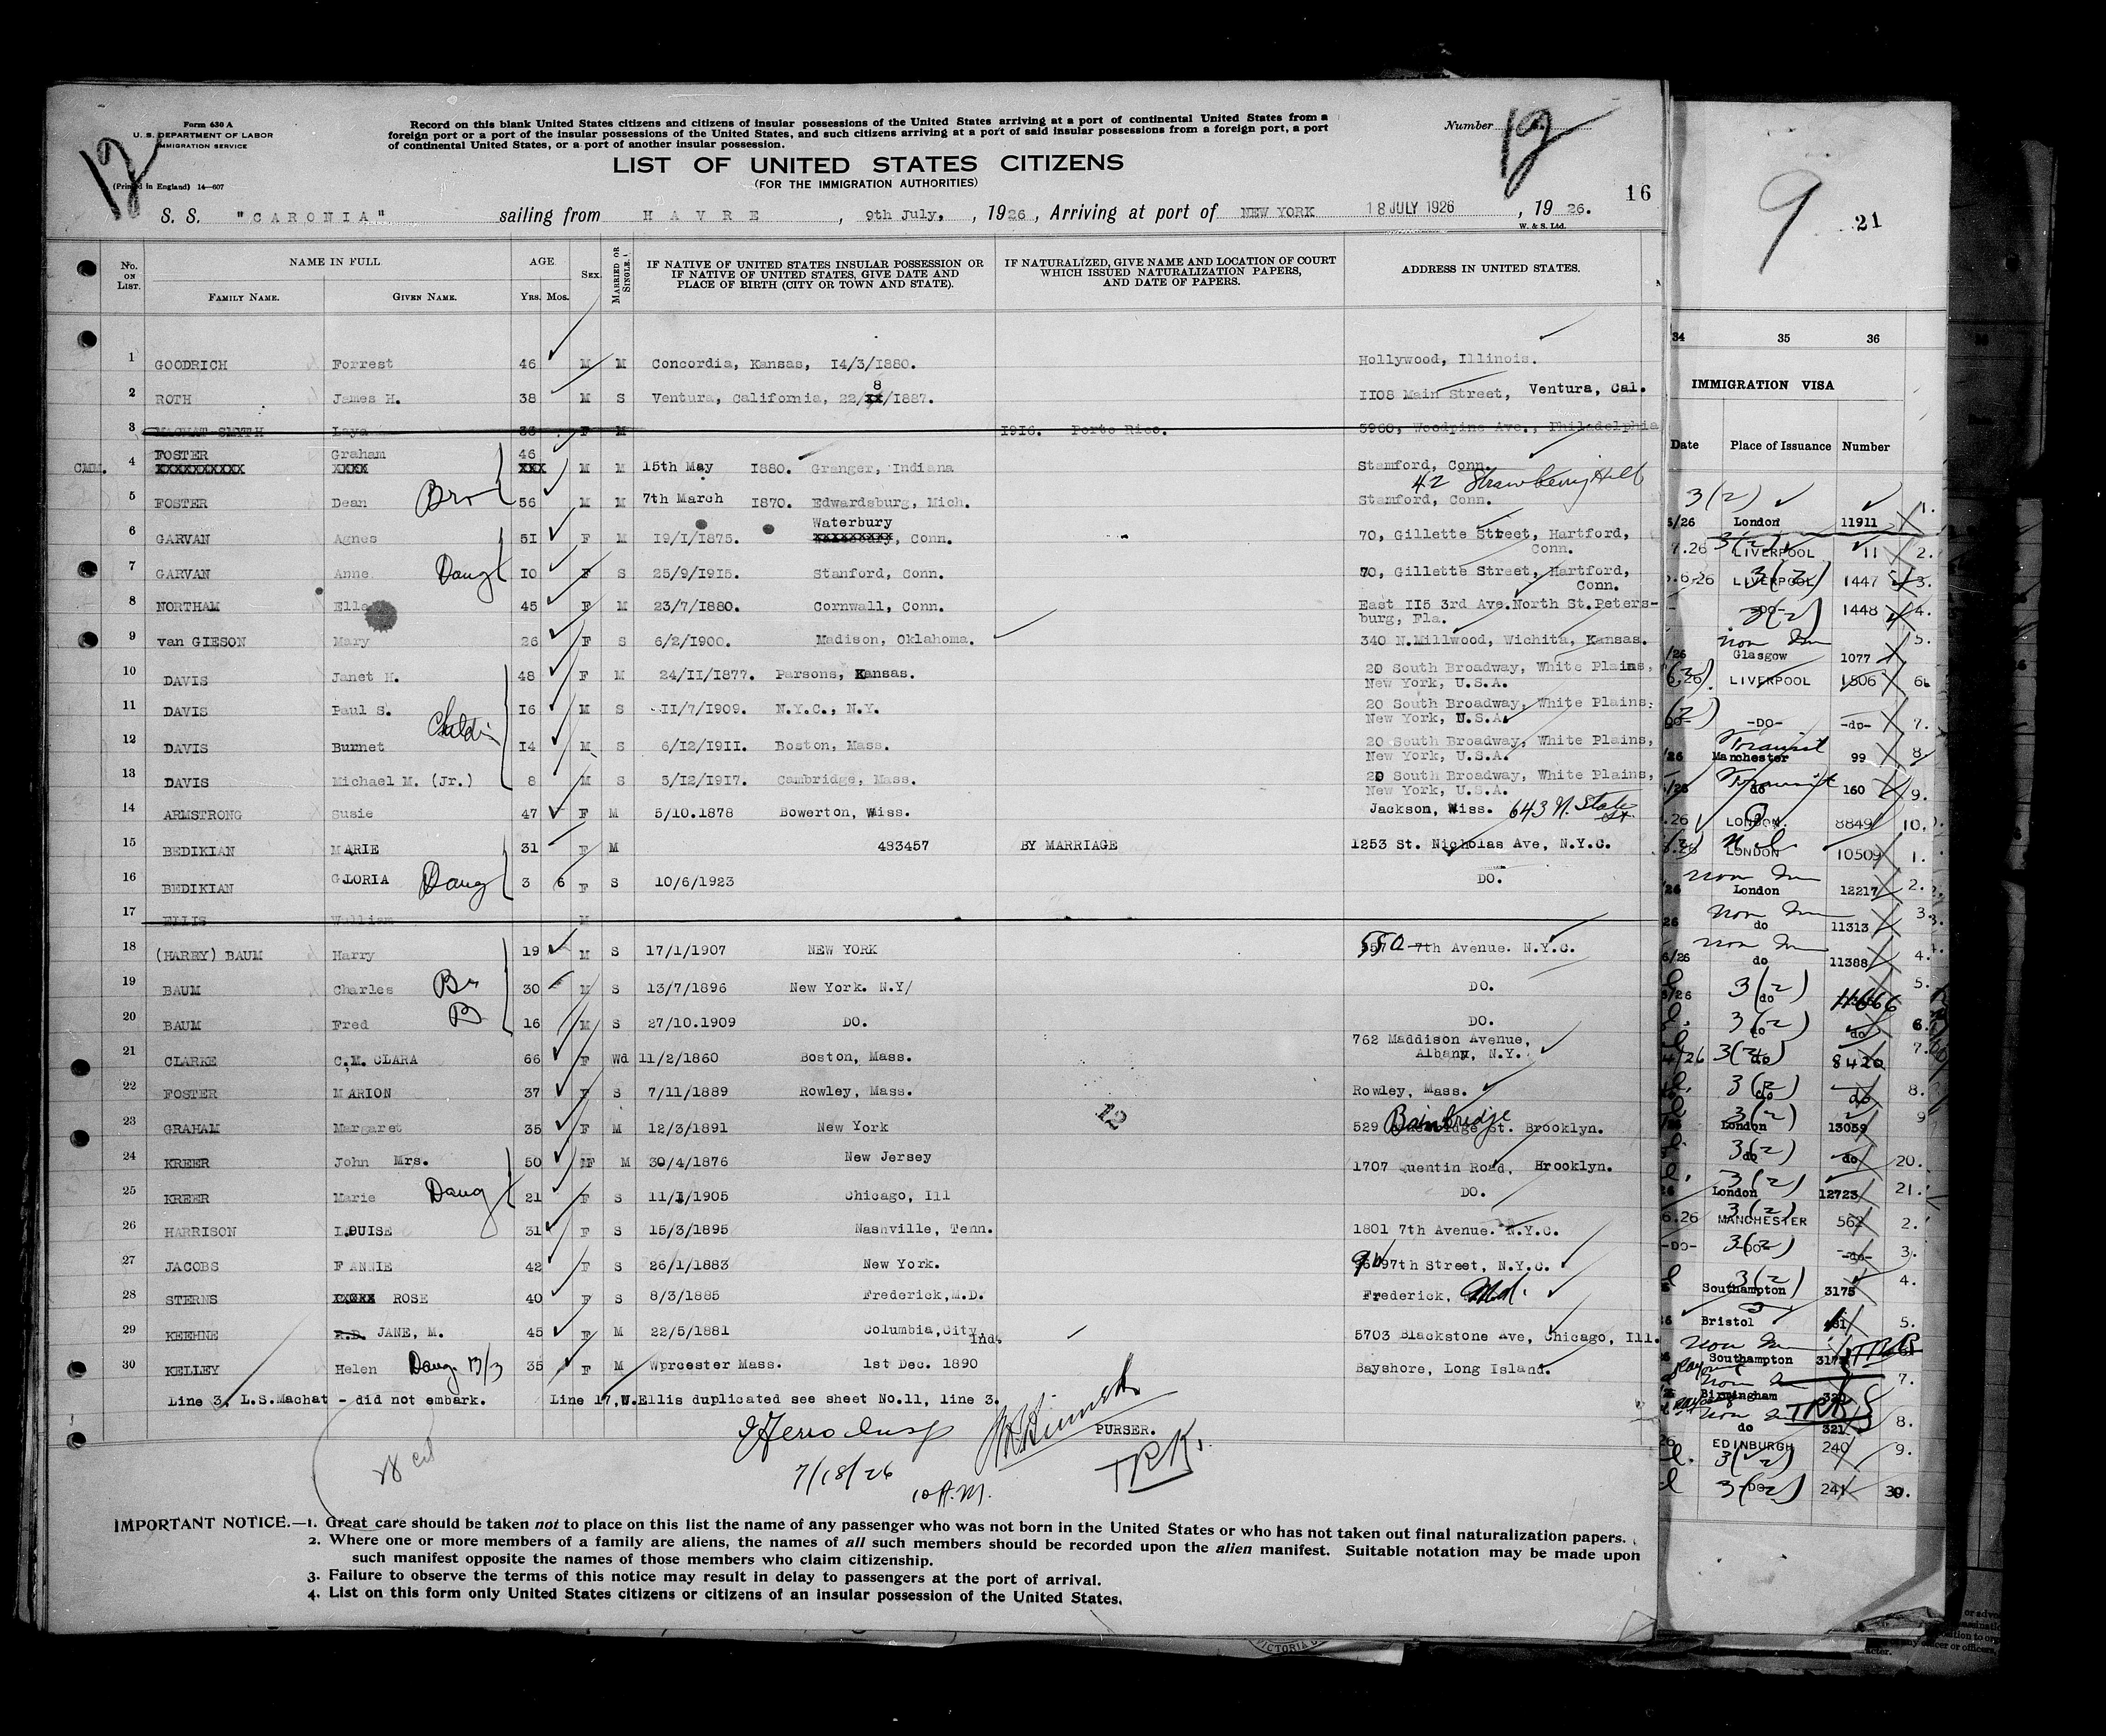 Form 630 A
U. S. DEPARTMENT OF LABOR
IMMIGRATION SERVICE
(Printed in England) 14—607
12
Record on this blank United States citizens and citizens of insular possessions of the United States arriving at a port of continental United States from a
foreign port or a port of the insular possessions of the United States, and such citizens arriving at a port of said insular possessions from a foreign port, a port
of continental United States, or a port of another insular possession.
Number 12
LIST OF UNITED STATES CITIZENS
(FOR THE IMMIGRATION AUTHORITIES)
16
S. S. "CARONIA" sailing from HAVRE, 9th July, , 1926, Arriving at port of NEW YORK 18 JULY 1926, 1926.
W. & S. Ltd.
No. ON LIST. NAME IN FULL FAMILY NAME. GIVEN NAME. AGE YRS. MOS. SEX. MARRIED OR SINGLE. IF NATIVE OF UNITED STATES INSULAR POSSESSION OR IF NATIVE OF UNITED STATES, GIVE DATE AND PLACE OF BIRTH (CITY OR TOWN AND STATE). IF NATURALIZED, GIVE NAME AND LOCATION OF COURT WHICH ISSUED NATURALIZATION PAPERS, AND DATE OF PAPERS. ADDRESS IN UNITED STATES.
1 GOODRICH Forrest 46 M M Concordia, Kansas, 14/3/1880. Hollywood, Illinois.
2 ROTH James H. 38 M S Ventura, California, 22/8/1887. 1108 Main Street, Ventura, Cal.
3 MACHAT SMYTH Laya 36 F M 1916. Porto Rico. 5960, Woodpine Ave., Philadelphia
CMM. 4 FOSTER Graham 46 M M 15th May 1880. Granger, Indiana Stamford, Conn.
XXXXXXXXXX XXXX XXX
42 Strawberry Hill
5 FOSTER Dean Bro 56 M M 7th March 1870. Edwardsburg, Mich. Stamford, Conn.
6 GARVAN Agnes 51 F M 19/1/1875. Waterbury, Conn. 70, Gillette Street, Hartford, Conn.
7 GARVAN Anne Daug 10 F S 25/9/1915. Stanford, Conn. 70, Gillette Street, Hartford, Conn.
8 NORTHAM Ella 45 F M 23/7/1880. Cornwall, Conn. East 115 3rd Ave. North St. Peters-
burg, Fla.
9 van GIESON Mary 26 F S 6/2/1900. Madison, Oklahoma. 340 N.Millwood, Wichita, Kansas.
10 DAVIS Janet H. 48 F M 24/11/1877. Parsons, Kansas. 20 South Broadway, White Plains,
New York, U.S.A.
11 DAVIS Paul S. 16 M S 11/7/1909. N.Y.C., N.Y. 20 South Broadway, White Plains,
New York, U.S.A.
12 DAVIS Burnet 14 M S 6/12/1911. Boston, Mass. 20 South Broadway, White Plains,
New York, U.S.A.
13 DAVIS Michael M. (Jr.) 8 M S 5/12/1917. Cambridge, Mass. 20 South Broadway, White Plains,
New York, U.S.A.
14 ARMSTRONG Susie 47 F M 5/10.1878 Bowerton, Miss. Jackson, Miss. 643 N. State St.
15 BEDIKIAN MARIE 31 F M 483457 BY MARRIAGE 1253 St. Nicholas Ave, N.Y.C.
16 BEDIKIAN GLORIA Daug 3 6 F S 10/6/1923 DO.
17 ELLIS William M
18 (HARRY) BAUM Harry 19 M S 17/1/1907 NEW YORK 550 7th Avenue. N.Y.C.
19 BAUM Charles Br 30 M S 13/7/1896 New York. N.Y/ DO.
20 BAUM Fred B 16 M S 27/10.1909 DO. DO.
21 CLARKE C.M. CLARA 66 F Wd 11/2/1860 Boston, Mass. 762 Maddison Avenue,
Albany, N.Y.
22 FOSTER MARION 37 F S 7/11/1889 Rowley, Mass. Rowley, Mass.
12
23 GRAHAM Margaret 35 F M 12/3/1891 New York 529 Bainbridge St. Brooklyn.
24 KREER John Mrs. 50 F M 30/4/1876 New Jersey 1707 Quentin Road, Brooklyn.
25 KREER Marie Daug 21 F S 11/1/1905 Chicago, Ill DO.
26 HARRISON LOUISE 31 F S 15/3/1895 Nashville, Tenn. 1801 7th Avenue. N.Y.C.
27 JACOBS FANNIE 42 F S 26/1/1883 New York. 97th Street, N.Y.C.
28 STERNS ROSE 40 F S 8/3/1885 Frederick, M.D. Frederick, Md.
29 KEEHNE JANE, M. 45 F M 22/5/1881 Columbia, City Ind. 5703 Blackstone Ave, Chicago, Ill.
30 KELLEY Helen 35 F M Wprcester Mass. 1st Dec. 1890 Bayshore, Long Island.
Line 3, L.S.Machat - did not embark. Line 17, W.Ellis duplicated see sheet No.11, line 3.
PURSER.
7/18/26
10 A.M.
TRK.
IMPORTANT NOTICE.—1. Great care should be taken not to place on this list the name of any passenger who was not born in the United States or who has not taken out final naturalization papers.
2. Where one or more members of a family are aliens, the names of all such members should be recorded upon the alien manifest. Suitable notation may be made upon
such manifest opposite the names of those members who claim citizenship.
3. Failure to observe the terms of this notice may result in delay to passengers at the port of arrival.
4. List on this form only United States citizens or citizens of an insular possession of the United States.
9
21
34 35 36
IMMIGRATION VISA
Date Place of Issuance Number
3(2)
5/26 London 11911 1.
7.26 LIVERPOOL 11 2.
5.6.26 LIVERPOOL 1447 3.
-DO- 1448 4.
/26 Glasgow 1077 5.
LIVERPOOL 1506 6.
-DO- -do- 7.
Transit
/26 Manchester 99 8
Transit
/26 do 160 9.
.26 LONDON. 8849 10.
LONDON 10509 1.
/26 London 12217 2.
26 do 11313 3.
6/26 do 11388 4.
6/26 do 11666 5.
do do 6.
4/26 do 8420 7.
do do 8.
London 13059 9
do do 20.
London 12723 21.
6.26 MANCHESTER 562 2.
-DO- -DO- -do- 3.
Southampton 3175 4.
Bristol 5.
Southampton
7.
Birmingham 320
do 321 8.
EDINBURGH 240 9.
-DO- 241 30.